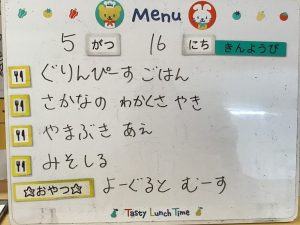 Menu
5 がつ 16 にち きんようび
ぐりんぴーす ごはん
さかなの わかくさ やき
やまぶき あえ
みそしる
☆おやつ☆ よーぐると むーす
Tasty Lunch Time